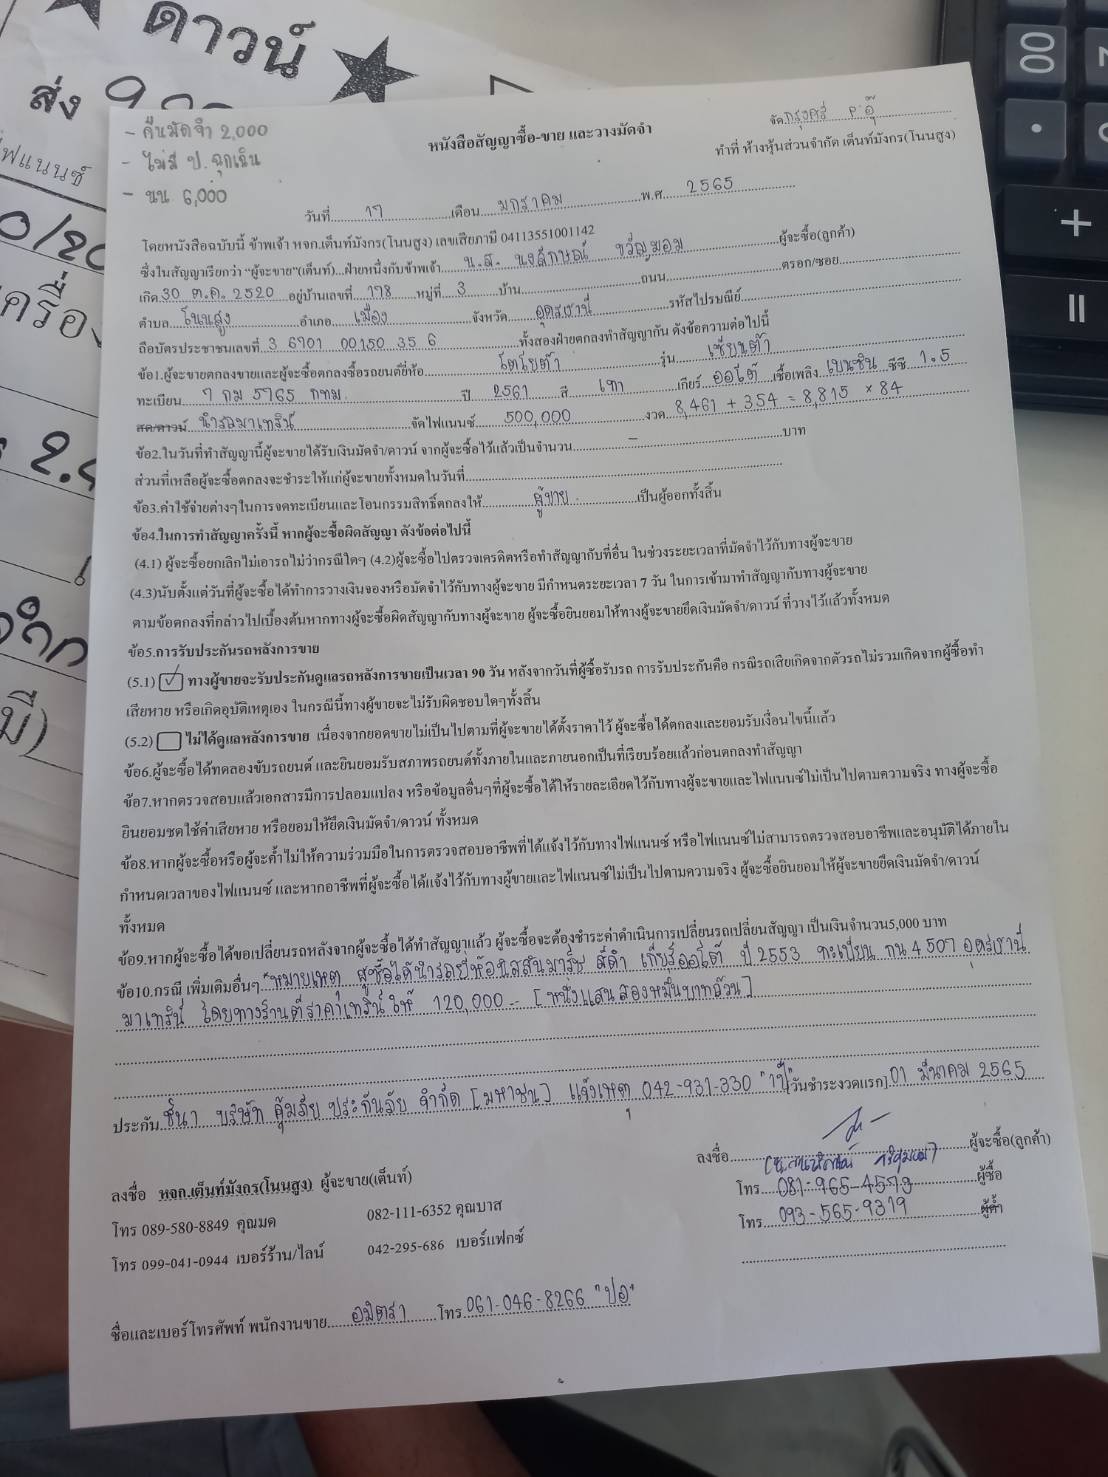 ดาวน์
ส่ง
ไฟแนนซ์
- คืนมัดจำ 2,000
- ไม่มี ป.ฉุกเฉิน
- นน 6,000
จัดกรุงศรี P'อุ๊
หนังสือสัญญาซื้อ-ขาย และวางมัดจำ
ทำที่ ห้างหุ้นส่วนจำกัด เต็นท์มังกร(โนนสูง)
วันที่ 17 เดือน มกราคม พ.ศ. 2565
โดยหนังสือฉบับนี้ ข้าพเจ้า หจก.เต็นท์มังกร(โนนสูง) เลขเสียภาษี 04113551001142
ซึ่งในสัญญาเรียกว่า "ผู้จะขาย"(เต็นท์)...ฝ่ายหนึ่งกับข้าพเจ้า น.ส. นงลักษณ์ ขวัญมอม ผู้จะซื้อ(ลูกค้า)
เกิด 30 ต.ค. 2520 อยู่บ้านเลขที่ 178 หมู่ที่ 3 บ้าน ถนน ตรอก/ซอย
ตำบล โนนสูง อำเภอ เมือง จังหวัด อุดรธานี รหัสไปรษณีย์
ถือบัตรประชาชนเลขที่ 3 6701 00150 35 6 ทั้งสองฝ่ายตกลงทำสัญญากัน ดังข้อความต่อไปนี้
ข้อ1.ผู้จะขายตกลงขายและผู้จะซื้อตกลงซื้อรถยนต์ยี่ห้อ โตโยต้า รุ่น เซียนต้า
ทะเบียน 7 กม 5765 กทม ปี 2561 สี เทา เกียร์ ออโต้ เชื้อเพลิง เบนซิน ซีซี 1.5
สด/ดาวน์ นำรถมาเทริน จัดไฟแนนซ์ 500,000 งวด 8,461 + 354 = 8,815 × 84
ข้อ2.ในวันที่ทำสัญญานี้ผู้จะขายได้รับเงินมัดจำ/ดาวน์ จากผู้จะซื้อไว้แล้วเป็นจำนวน - บาท
ส่วนที่เหลือผู้จะซื้อตกลงจะชำระให้แก่ผู้จะขายทั้งหมดในวันที่
ข้อ3.ค่าใช้จ่ายต่างๆในการจดทะเบียนและโอนกรรมสิทธิ์ตกลงให้ ผู้ขาย เป็นผู้ออกทั้งสิ้น
ข้อ4.ในการทำสัญญาครั้งนี้ หากผู้จะซื้อผิดสัญญา ดังข้อต่อไปนี้
(4.1) ผู้จะซื้อยกเลิกไม่เอารถไม่ว่ากรณีใดๆ (4.2)ผู้จะซื้อไปตรวจเครดิตหรือทำสัญญากับที่อื่น ในช่วงระยะเวลาที่มัดจำไว้กับทางผู้จะขาย
(4.3)นับตั้งแต่วันที่ผู้จะซื้อได้ทำการวางเงินจองหรือมัดจำไว้กับทางผู้จะขาย มีกำหนดระยะเวลา 7 วัน ในการเข้ามาทำสัญญากับทางผู้จะขาย
ตามข้อตกลงที่กล่าวไปเบื้องต้นหากทางผู้จะซื้อผิดสัญญากับทางผู้จะขาย ผู้จะซื้อยินยอมให้ทางผู้จะขายยึดเงินมัดจำ/ดาวน์ ที่วางไว้แล้วทั้งหมด
ข้อ5.การรับประกันรถหลังการขาย
(5.1) ✓ ทางผู้ขายจะรับประกันดูแลรถหลังการขายเป็นเวลา 90 วัน หลังจากวันที่ผู้ซื้อรับรถ การรับประกันคือ กรณีรถเสียเกิดจากตัวรถไม่รวมเกิดจากผู้ซื้อทำ
เสียหาย หรือเกิดอุบัติเหตุเอง ในกรณีนี้ทางผู้ขายจะไม่รับผิดชอบใดๆทั้งสิ้น
(5.2) ไม่ได้ดูแลหลังการขาย เนื่องจากยอดขายไม่เป็นไปตามที่ผู้จะขายได้ตั้งราคาไว้ ผู้จะซื้อได้ตกลงและยอมรับเงื่อนไขนี้แล้ว
ข้อ6.ผู้จะซื้อได้ทดลองขับรถยนต์ และยินยอมรับสภาพรถยนต์ทั้งภายในและภายนอกเป็นที่เรียบร้อยแล้วก่อนตกลงทำสัญญา
ข้อ7.หากตรวจสอบแล้วเอกสารมีการปลอมแปลง หรือข้อมูลอื่นๆที่ผู้จะซื้อได้ให้รายละเอียดไว้กับทางผู้จะขายและไฟแนนซ์ไม่เป็นไปตามความจริง ทางผู้จะซื้อ
ยินยอมชดใช้ค่าเสียหาย หรือยอมให้ยึดเงินมัดจำ/ดาวน์ ทั้งหมด
ข้อ8.หากผู้จะซื้อหรือผู้จะค้ำไม่ให้ความร่วมมือในการตรวจสอบอาชีพที่ได้แจ้งไว้กับทางไฟแนนซ์ หรือไฟแนนซ์ไม่สามารถตรวจสอบอาชีพและอนุมัติได้ภายใน
กำหนดเวลาของไฟแนนซ์ และหากอาชีพที่ผู้จะซื้อได้แจ้งไว้กับทางผู้ขายและไฟแนนซ์ไม่เป็นไปตามความจริง ผู้จะซื้อยินยอมให้ผู้จะขายยึดเงินมัดจำ/ดาวน์
ทั้งหมด
ข้อ9.หากผู้จะซื้อได้ขอเปลี่ยนรถหลังจากผู้จะซื้อได้ทำสัญญาแล้ว ผู้จะซื้อจะต้องชำระค่าดำเนินการเปลี่ยนรถเปลี่ยนสัญญา เป็นเงินจำนวน5,000 บาท
ข้อ10.กรณี เพิ่มเติมอื่นๆ "หมายเหตุ ผู้ซื้อได้นำรถยี่ห้อนิสสันมาร์ช สีดำ เกียร์ออโต้ ปี 2553 ทะเบียน กน 4507 อุดรธานี
มาเทริน โดยทางร้านตีราคาเทรินให้ 120,000.- [หนึ่งแสนสองหมื่นบาทถ้วน]
ประกัน ชั้น1 บริษัท คุ้มภัย ประกันภัย จำกัด [มหาชน] แจ้งเหตุ 042-931-330 วันชำระงวดแรก 01 มีนาคม 2565
ลงชื่อ ผู้จะซื้อ(ลูกค้า)
ลงชื่อ หจก.เต็นท์มังกร(โนนสูง) ผู้จะขาย(เต็นท์)
โทร 081-965-4573 ผู้ซื้อ
โทร 089-580-8849 คุณมด 082-111-6352 คุณบาส
โทร 093-565-9319 ผู้ค้ำ
โทร 099-041-0944 เบอร์ร้าน/ไลน์ 042-295-686 เบอร์แฟกซ์
ชื่อและเบอร์โทรศัพท์ พนักงานขาย อมิตรา โทร 061-046-8266 "ปอ"